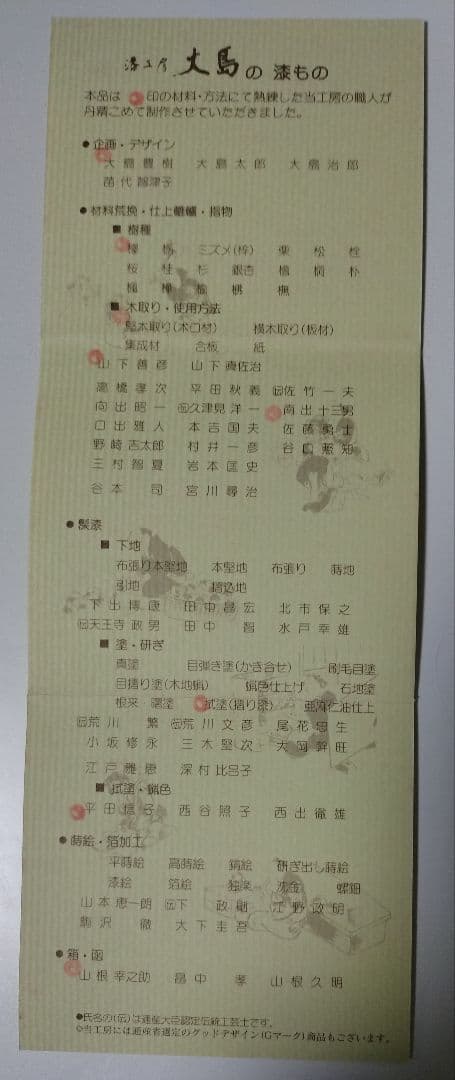 漆工房 大島の 漆もの
本品は 印の材料・方法にて熟練した当工房の職人が
丹精こめて制作させていただきました。
●企画・デザイン
大島豊樹 大島太郎 大島治郎
苗代智津子
●材料荒挽・仕上轆轤・指物
■樹種
欅 栃 ミズメ(梓) 栗 松 栓
桜 桂 杉 銀杏 檜 朴
■木取り・使用方法
竪木取り(木口材) 横木取り(板材)
集成材 合板 紙
山下善彦 山下真佐治
高橋孝次 平田秋義 ㊁佐竹一夫
向出昭一 久津見洋一 南出十三男
口出雅人 本吉国夫 佐藤勇士
野崎吉太郎 村井一彦 谷口憲知
三村智夏 岩本匡史
谷本司 宮川尋治
●髹漆
■下地
布張り本堅地 本堅地 布張り 蒔地
引地 錆渋地
下出博康 田中昌宏 北市保之
天王寺政男 田中智 水戸幸雄
■塗・研ぎ
真塗 目弾き塗(かき合せ) 刷毛目塗
目摺り塗(木地蝋) 蝋色仕上げ 石地塗
根来・曙塗 拭塗(摺り漆) 亜麻仁油仕上
荒川繁 荒川文彦 尾花忠生
小坂修永 三木堅次 大岡幹旺
江戸雅恵 深村比呂子
■拭塗・蝋色
平田信子 西谷照子 西出徹雄
●蒔絵・箔加工
平蒔絵 高蒔絵 錆絵 研ぎ出し蒔絵
漆絵 箔絵 独楽 沈金 螺鈿
山本恵一朗 下政則 江野政明
駒沢徹 大下圭吾
●箱・函
山根幸之助 畠中孝 山根久明
●氏名の(伝)は通産大臣認定伝統工芸士です。
◎当工房には通産省選定のグッドデザイン(Gマーク)商品もございます。